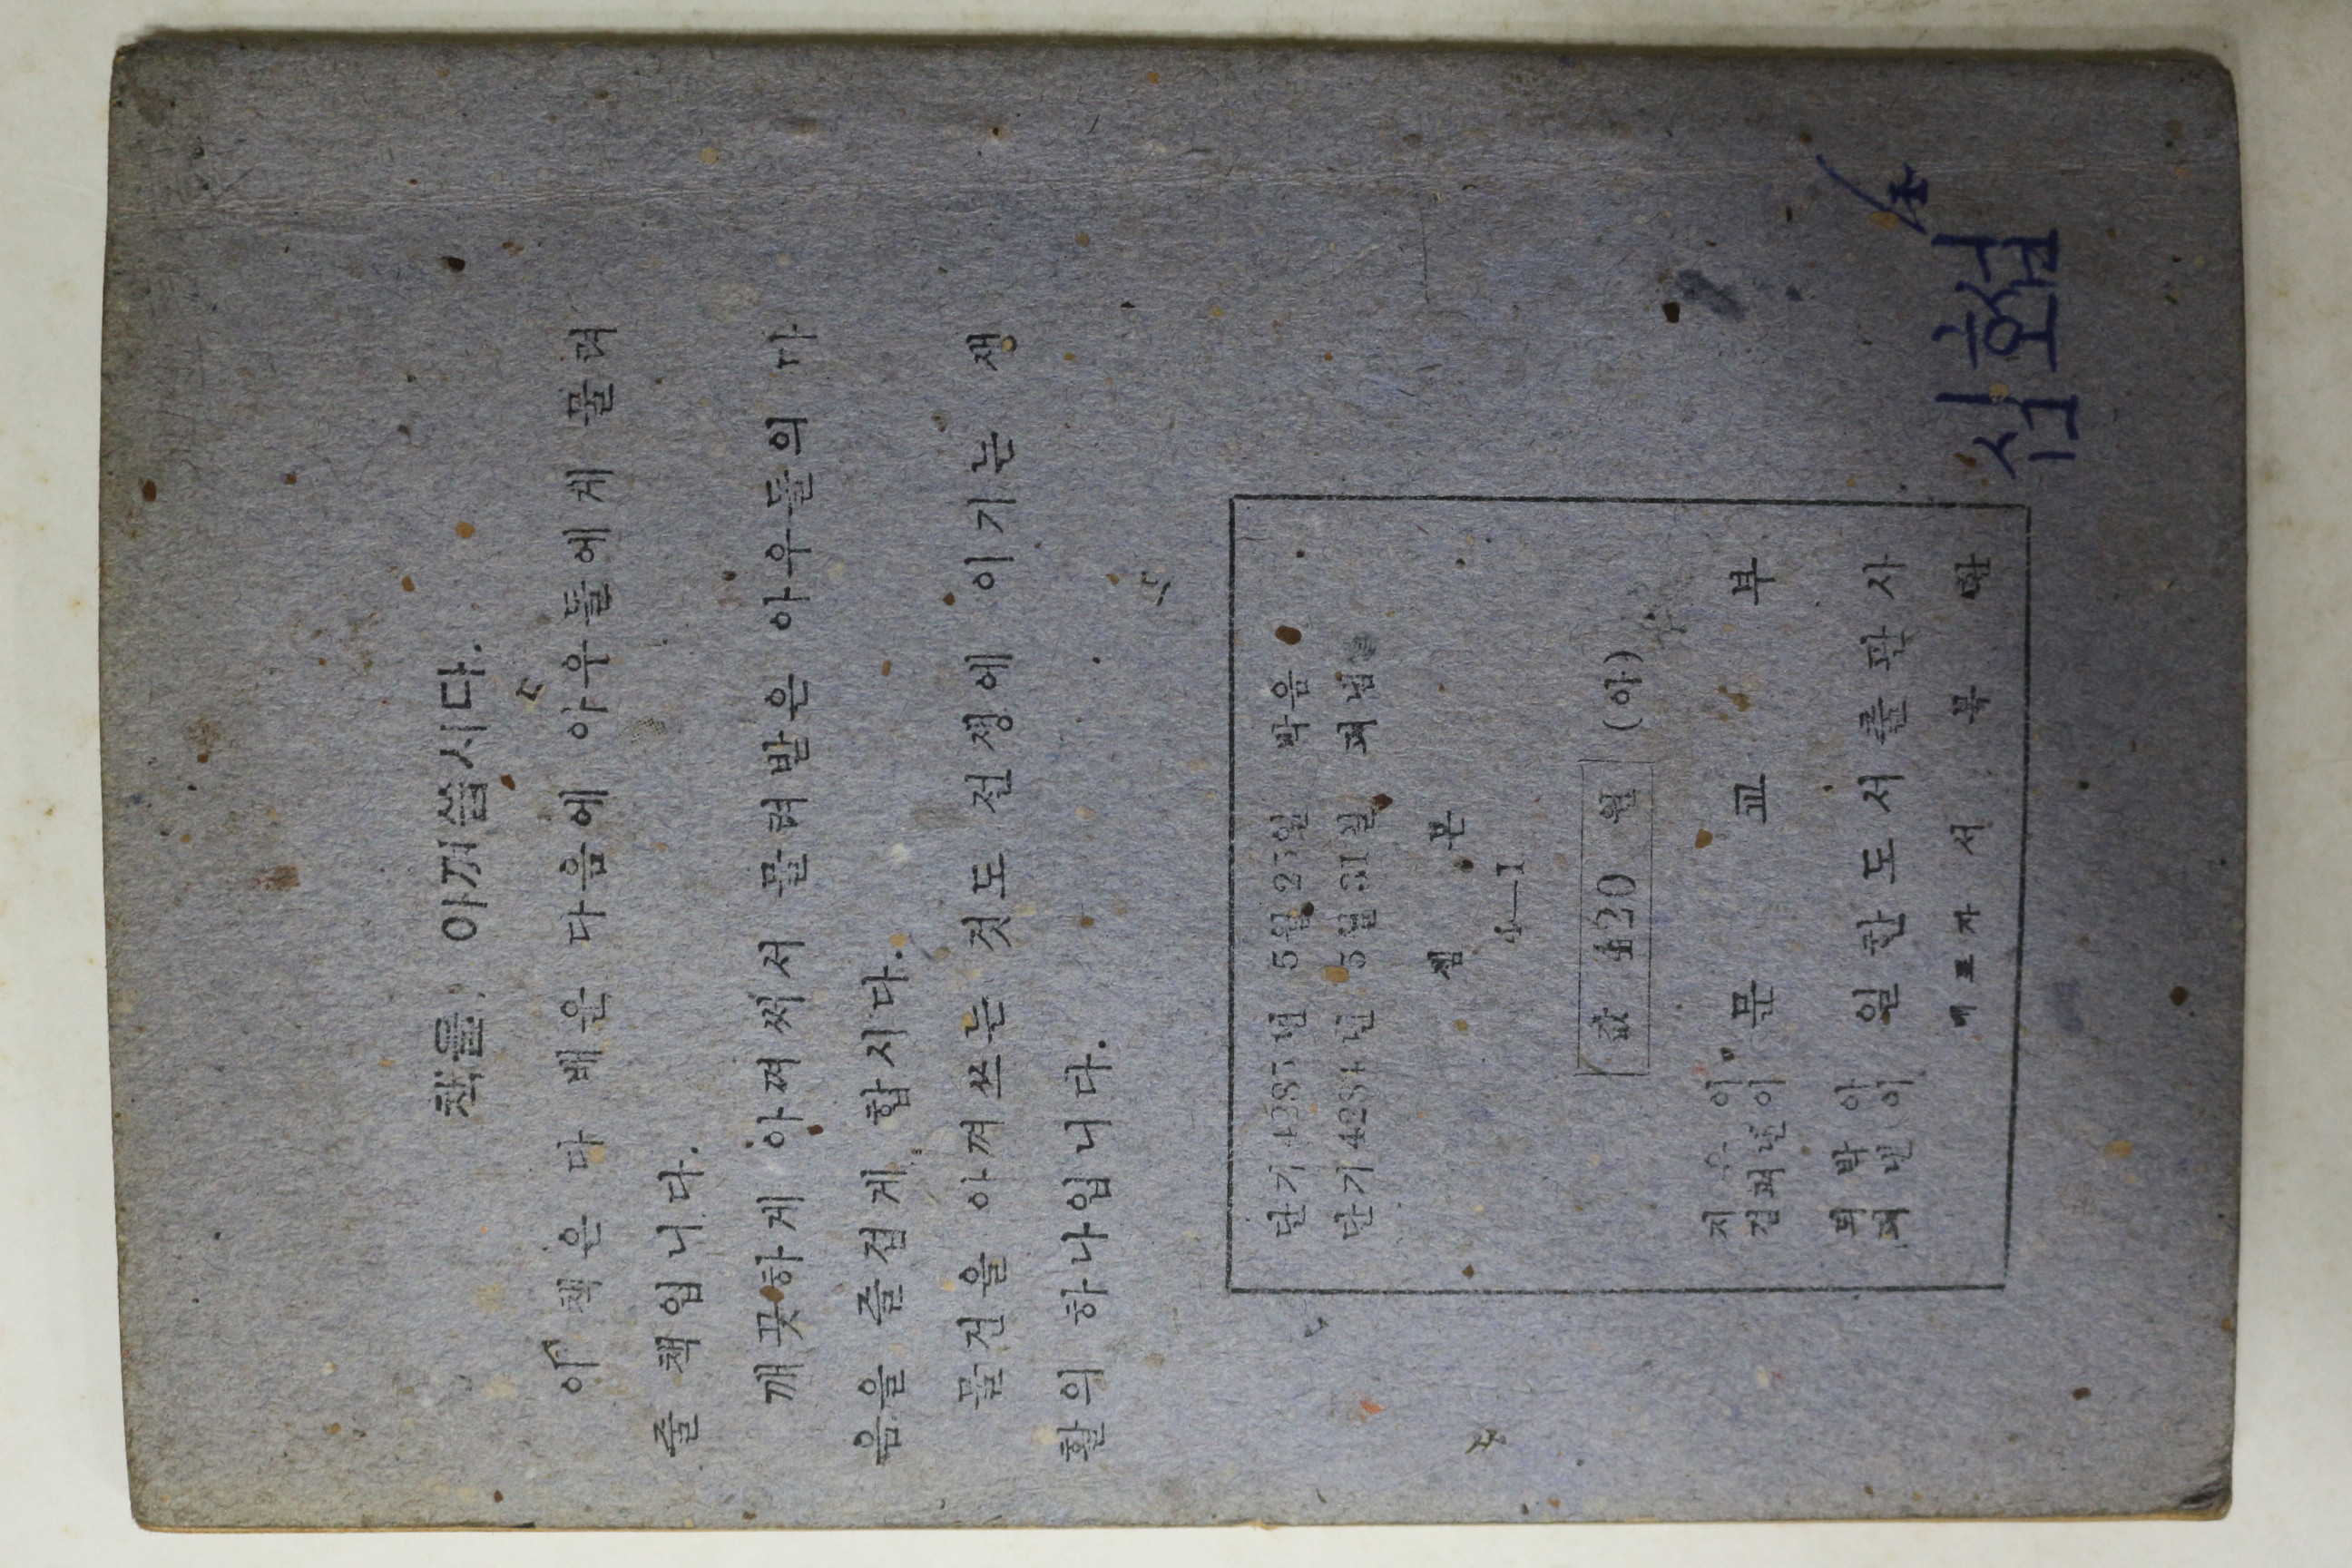 책을 아끼씁시다.
이 책은 다 배운 다음에 아우들에게 물려
줄 책입니다.
깨끗하게 아껴써서 물려받은 아우들의 마
음을 즐겁게 합시다.
물건을 아껴쓰는 것도 전쟁에 이기는 생
활의 하나입니다.
단기 428 년 5월 2 일 박음
단기 4284년 5월 31일 펴냄
셈 본
4—1
값 420 원 (아)
지은이
겸펴낸이 문 교 부
박아
펴낸이 일한도서출판사
대표자 서 복 환
심현섭